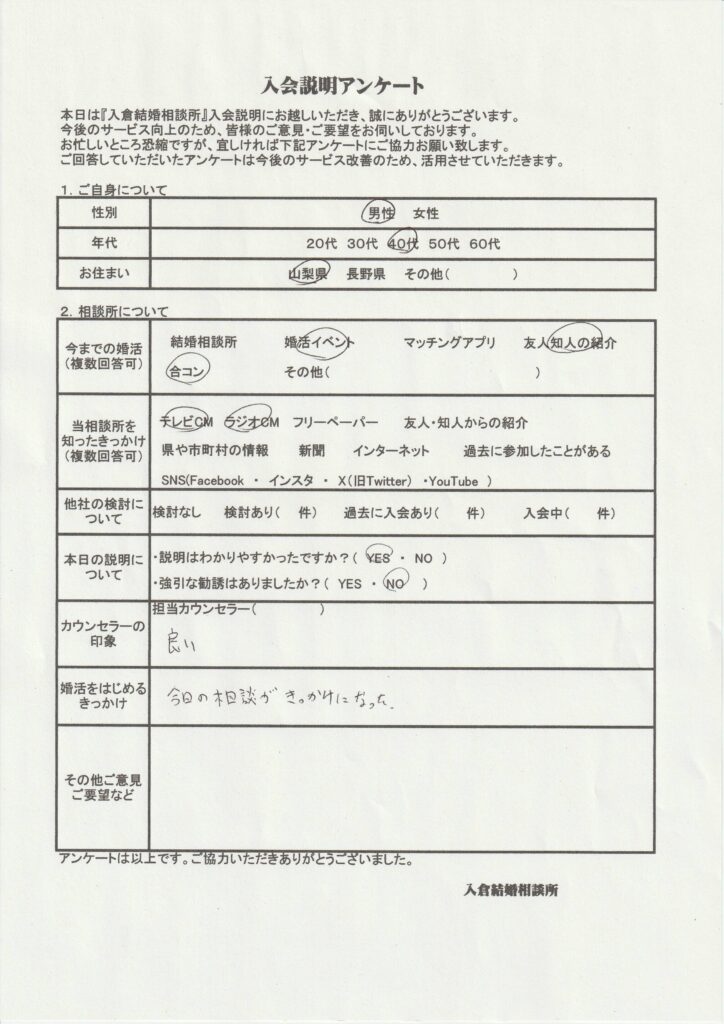 入会説明アンケート
本日は『入倉結婚相談所』入会説明にお越しいただき、誠にありがとうございます。
今後のサービス向上のため、皆様のご意見・ご要望をお伺いしております。
お忙しいところ恐縮ですが、宜しければ下記アンケートにご協力お願い致します。
ご回答していただいたアンケートは今後のサービス改善のため、活用させていただきます。
1. ご自身について
性別 男性 女性
年代 20代 30代 40代 50代 60代
お住まい 山梨県 長野県 その他( )
2. 相談所について
今までの婚活
(複数回答可)
結婚相談所 婚活イベント マッチングアプリ 友人知人の紹介
合コン その他( )
当相談所を
知ったきっかけ
(複数回答可)
テレビCM ラジオCM フリーペーパー 友人・知人からの紹介
県や市町村の情報 新聞 インターネット 過去に参加したことがある
SNS(Facebook ・ インスタ ・ X(旧Twitter) ・YouTube )
他社の検討に
ついて
検討なし 検討あり( 件) 過去に入会あり( 件) 入会中( 件)
本日の説明に
ついて
・説明はわかりやすかったですか？( YES ・ NO )
・強引な勧誘はありましたか？( YES ・ NO )
カウンセラーの
印象
担当カウンセラー( )
良い
婚活をはじめる
きっかけ
今日の相談がきっかけになった.
その他ご意見
ご要望など
アンケートは以上です。ご協力いただきありがとうございました。
入倉結婚相談所